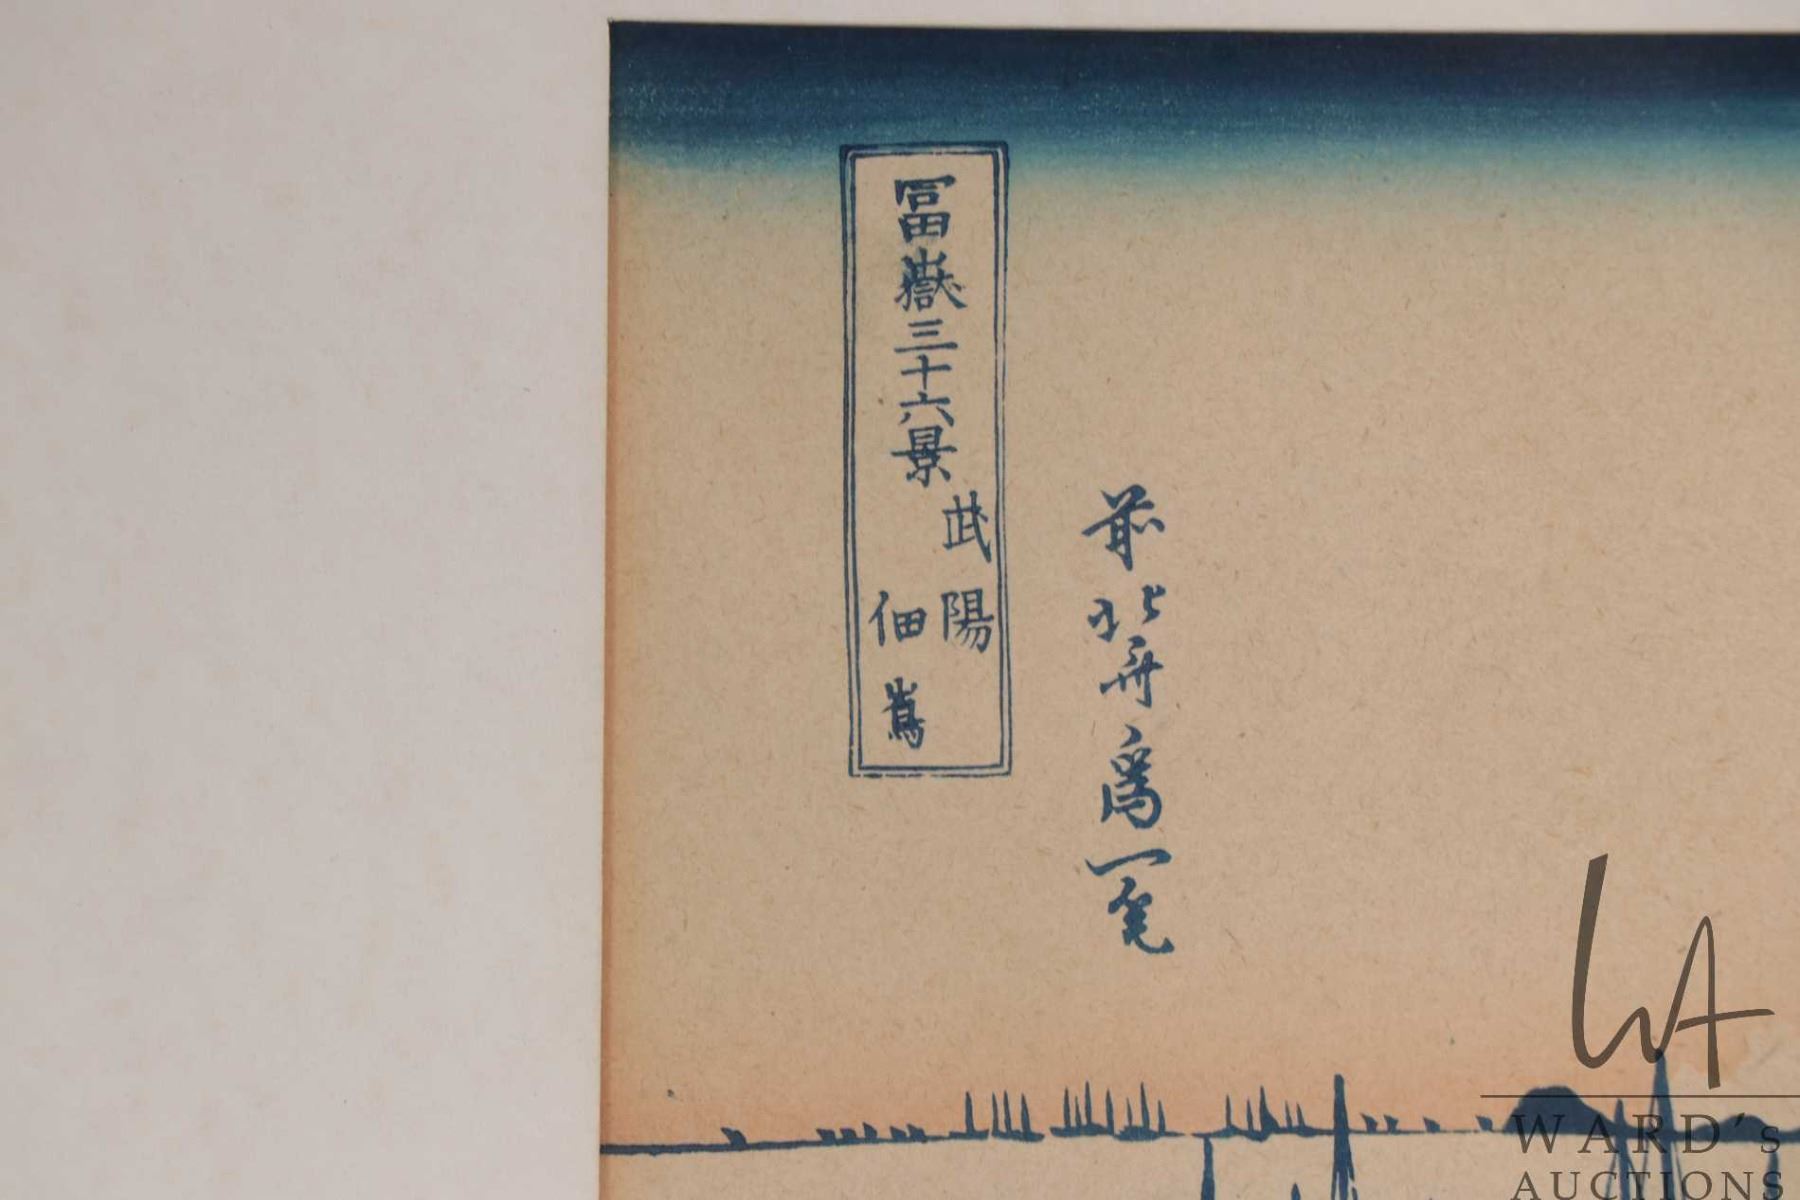 前北斎為一笔
冨嶽三十六景
武陽
佃嶌
WARD's
AUCTIONS